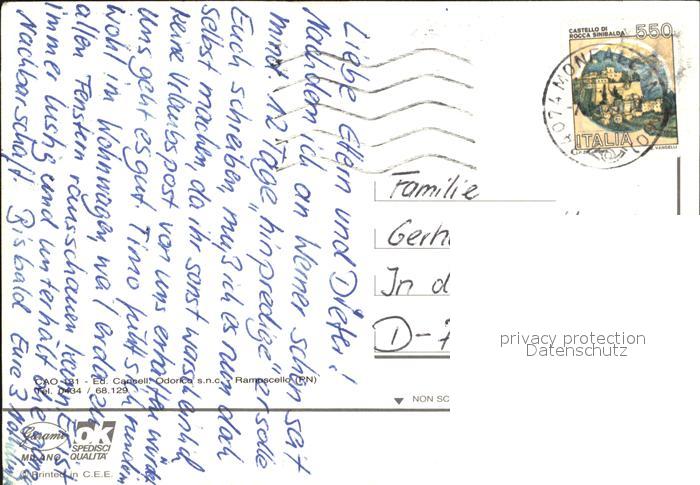 Liebe Eltern und Dieter!
Nachdem ich an Werner schon seit
mind. 12 Tage „hinpredige" er solle
Euch schreiben, muß ich es nun doch
selbst machen, da ihr sonst warscheinlich
keine Urlaubspost von uns erhalten würdet.
Uns geht es gut. Timo fühlt sich rundum
wohl im Wohnwagen, wo er da zu
allen Fenstern rausschauen kann. Er ist
immer lustig und unterhält die ganze
Nachbarschaft. Bis bald Eure 3
CASTELLO DI
ROCCA SINIBALDA
550
ITALIA
VANGELLI
34074 MONFALCONE
Familie
Gerh
In d
D-7
privacy protection
Datenschutz
CAO 131 - Ed. Cancell. Odorico s.n.c. - Ramuscello (PN)
Tel. 0434 / 68.129
NON SC
Garami
MILANO
ok
SPEDISCI
QUALITA'
© Printed in C.E.E.